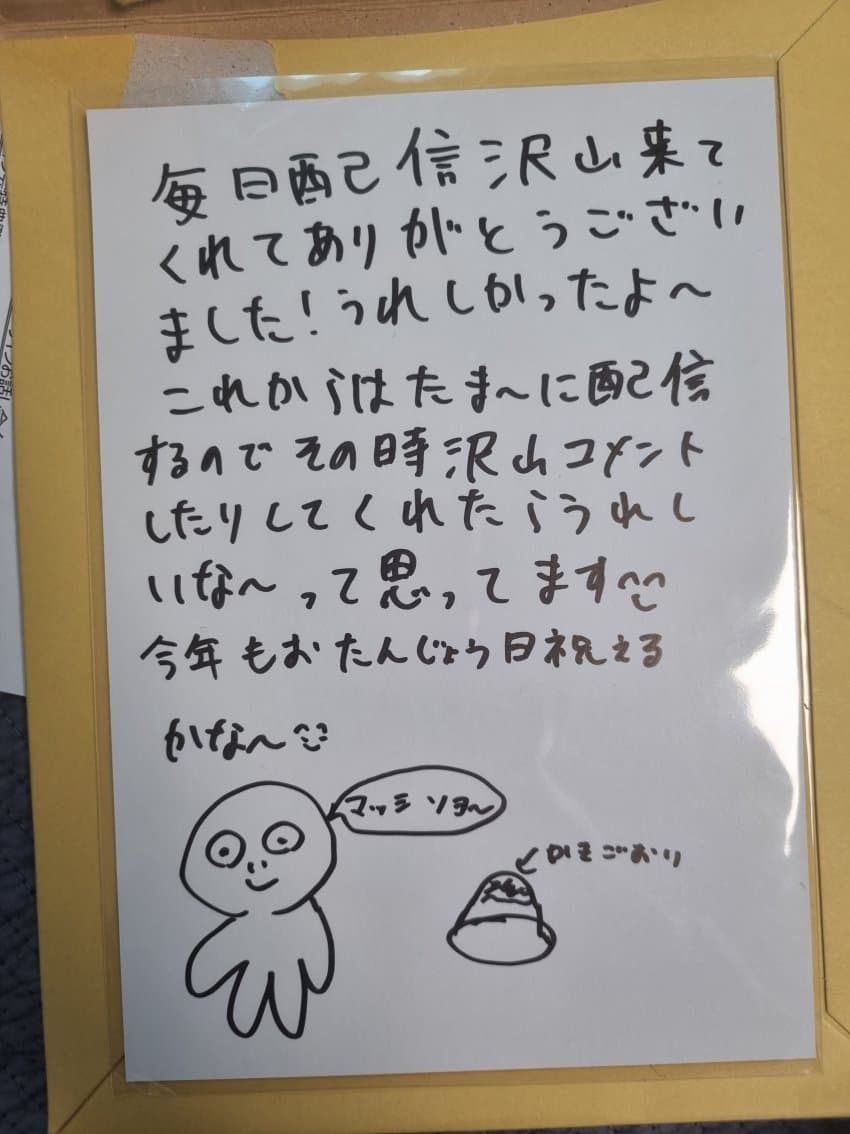 毎日配信沢山来て
くれてありがとうござい
ました!うれしかったよ〜
これからはたま〜に配信
するのでその時沢山コメント
したりしてくれたらうれし
いな〜って思ってます
今年もおたんじょう日祝える
かな〜
マッシソヨ〜
かきごおり